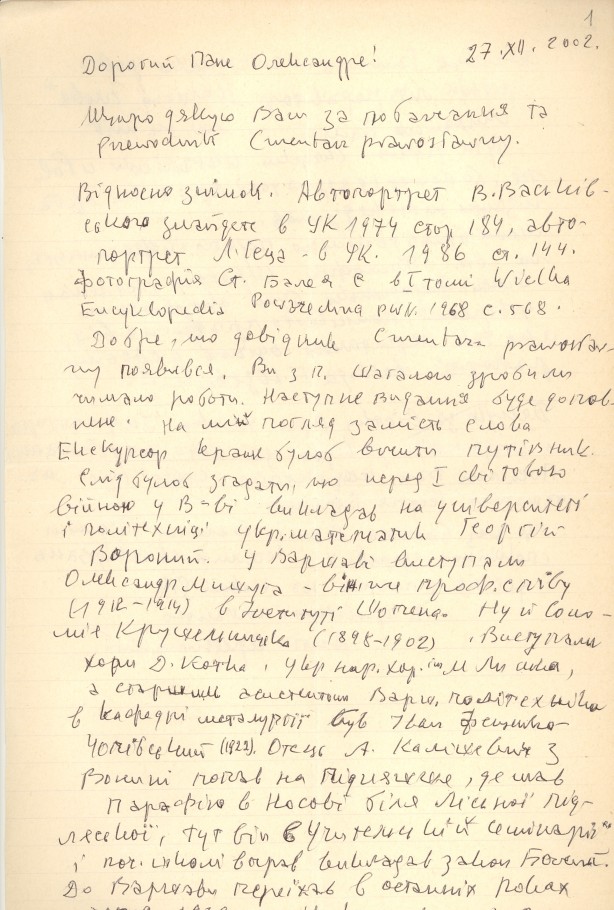 1
27.XII.2002.
Дорогий Пане Олександре!
Щиро дякую Вам за побажання та
przewodnik Cmentarz prawosławny.
Відносно знімок. Автопортрет В. Васьків-
ського знайдете в УК 1974 стор 184, авто-
портрет Л. Геца - в УК. 1986 ст. 144.
Фотографія Ст. Балея є в I томі Wielka
Encyklopedia Powszechna PWN. 1968 с. 568.
Добре, що довідник Cmentarz prawosław-
ny появився. Ви з п. Шагалою зробили
чимало роботи. Наступне видання буде допов-
нене. На мій погляд замість слова
Екскурсор краще булоб вжити путівник.
Слід булоб згадати, що перед I світовою
війною у В-ві викладав на університеті
і політехніці укр. математик Георгій
Вороний. У Варшаві виступали
Олександр Мишуга - він же проф. співу
(1912-1914) в Інституті Шопена. Ну й Соло-
мія Крушельницька (1898-1902). Виступали
хори Д. Котка, укр нар. хор. ім Лисика,
а старшим асистентом Варш. політехніки
в кафедрі металургії був Іван Фещенко-
Чопівський (1922). Отець А. Калішевич з
Волині попав на Підляшшє, де мав
парафію в Носові біля Лісної Під-
ляської, тут він в Учительській семінарії
і поч. школі вправ викладав закон Божий.
До Варшави переїхав в останніх роках